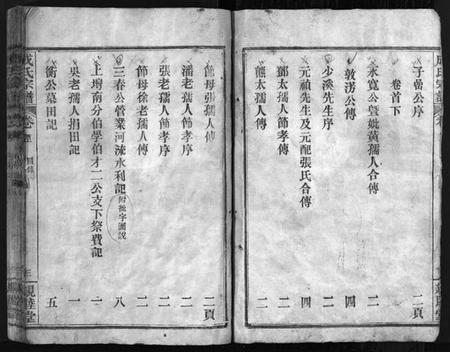 子嵒公序 二頁
卷首下
永寬公曁妣黃孺人合傳 二
敦滂公傳 四
少溪先生序 二
元禎先生及元配張氏合傳 四
鄧太孺人節孝傳 二
熊太孺人傳 二
節母張孺人傳 二頁
潘老孺人節孝序 二
張老孺人節孝序 二
節母徐老孺人傳 二
三春公管業河泳水利記 附批字圖說 八
上增南分伯學伯才二公支下祭費記 一
吳老孺人捐田記 一
衝公墓田記 五
成氏宗譜 卷首
親睦堂